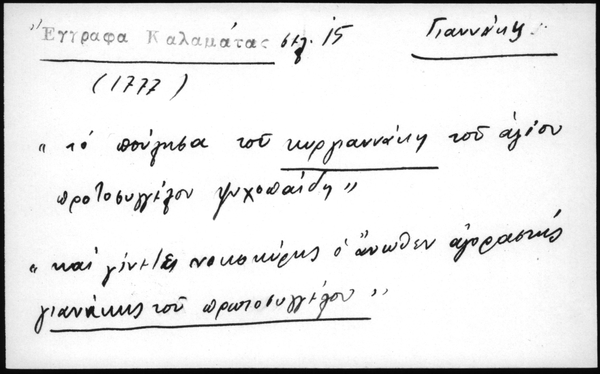 "Ἔγγραφα Καλαμάτας σελ. 15 Γιαννάκης
(1777)
"τό πούλησα τοῦ κυργιαννάκη τοῦ ἁγίου
πρωτοσυγγέλου ψυχοπαίδη"
"καί γίνεται νοικοκύρης ὁ ἄνωθεν ἀγοραστής
γιανάκης τοῦ πρωτοσυγγέλου"